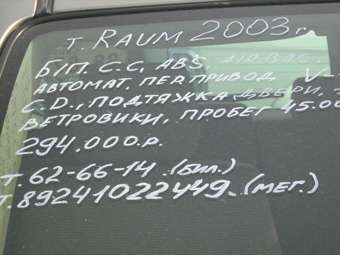 T. RAUM 2003г.
Б/П. С.С, ABS,
АВТОМАТ. ПЕР.ПРИВОД, V-
C.D., ПОДТЯЖКА ДВЕРИ,
ВЕТРОВИКИ, ПРОБЕГ 45.00
294,000.р.
Т. 62-66-14.(БИЛ.)
Т. 89241022449.(МЕГ.)